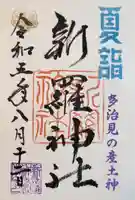 夏詣
多治見の産土神
新羅神社
令和五年八月十一日